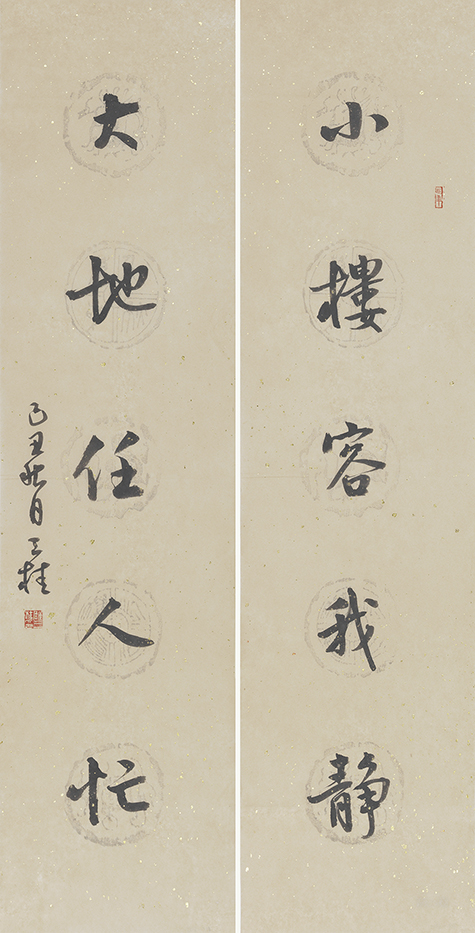 小樓容我静
大地任人忙
己丑秋月